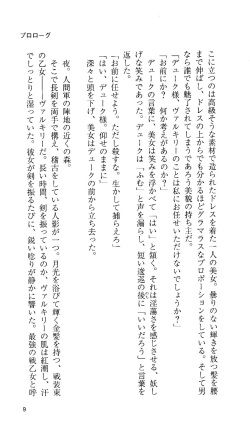 プロローグ
ここに立つのは高級そうな素材で造られたドレスを着た一人の美女。曇りのない輝きを放つ髪を腰
まで伸ばし、ドレスの上からでも分かるほどグラマラスなプロポーションをしている。そして男
なら誰でも魅了されてしまうであろう美貌の持ち主だ。
「デューク様、ヴァルキリーのことは私にお任せいただけないでしょうか?」
「お前にか? 何か考えがあるのか?」
デュークの言葉に、美女は笑みを浮かべて「はい」と頷く。それは淫蕩さを感じさせる、妖し
げな笑みであった。デュークは「ふむ」と声を漏らし、短い逡巡の後に「いいだろう」と言葉を
返した。
「お前に任せよう。ただし殺すな。生かして捕らえろ」
「はい、デューク様。仰せのままに」
深々と頭を下げ、美女はデュークの前から立ち去った。
夜。人間軍の陣地の近くの森。
そこで長剣を両手で構え、稽古をしている人影が一つ。月光を浴びて輝く金髪を持つ、戦装束
の乙女――ヴァルキリーだ。長い時間、剣を振っているのか、ヴァルキリーの肌は紅潮し、汗
でしっとりと湿っていた。彼女が剣を振るたびに、鋭い唸りが静かに響いた。最強の戦乙女と呼
9